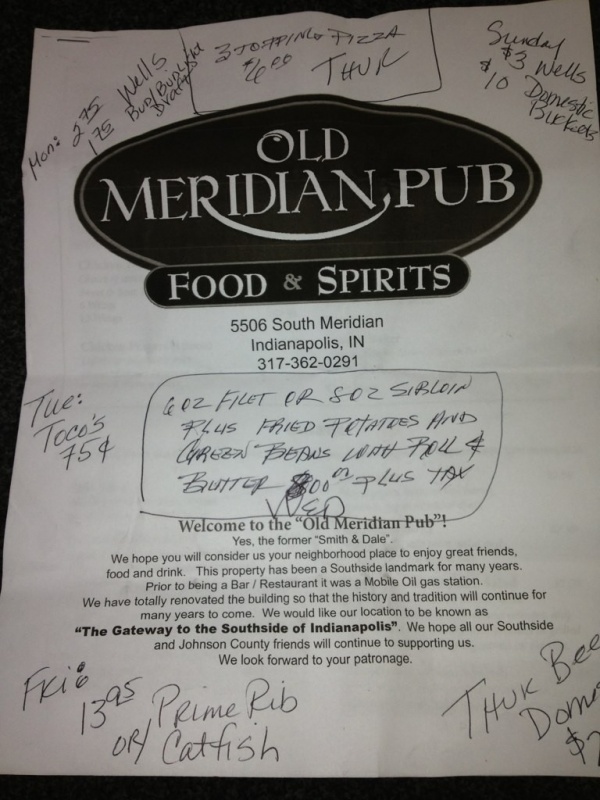 3 TOPPING PIZZA
$6.00 THUR
Mon: 2.75 Wells
1.75 Bud/Bud Light
Drafts
Sunday
$3 Wells
$10 Domestic
Buckets
OLD
MERIDIAN PUB
FOOD & SPIRITS
5506 South Meridian
Indianapolis, IN
317-362-0291
Tue:
Toco's
75¢
6 OZ FILET OR 8 OZ SIRLOIN
PLUS FRIED POTATOES AND
GREEN BEANS WITH ROLL &
BUTTER PLUS TAX
WED
Welcome to the "Old Meridian Pub"!
Yes, the former "Smith & Dale".
We hope you will consider us your neighborhood place to enjoy great friends,
food and drink. This property has been a Southside landmark for many years.
Prior to being a Bar / Restaurant it was a Mobile Oil gas station.
We have totally renovated the building so that the history and tradition will continue for
many years to come. We would like our location to be known as
"The Gateway to the Southside of Indianapolis". We hope all our Southside
and Johnson County friends will continue to supporting us.
We look forward to your patronage.
FRI:
13.95 Prime Rib
OR/ Catfish
THUR Bee
Dome
$